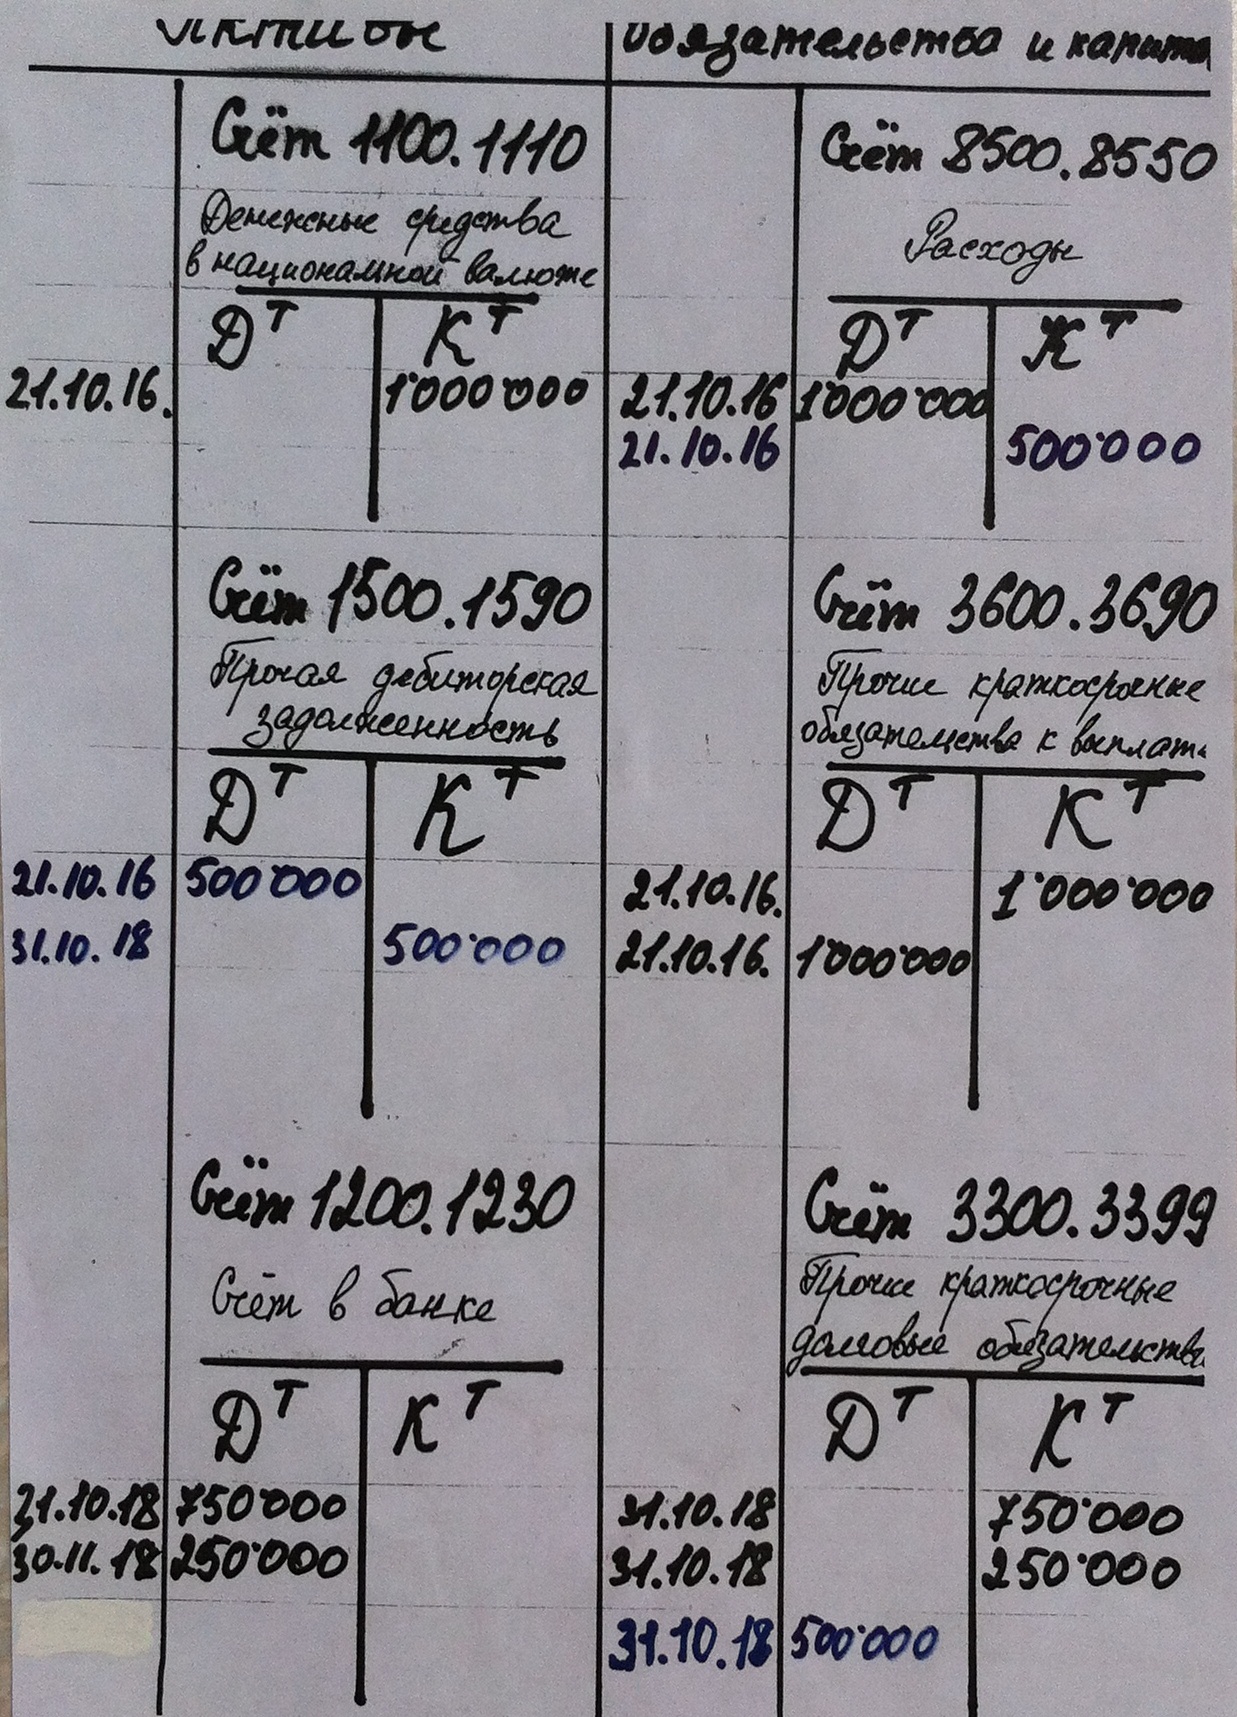 Активы
Обязательства и капитал
Счёт 1100.1110
Денежные средства
в национальной валюте
Дт Кт
21.10.16. 1'000'000
Счёт 8500.8550
Расходы
Дт Кт
21.10.16 1'000'000
21.10.16 500'000
Счёт 1500.1590
Прочая дебиторская
задолженность
Дт Кт
21.10.16 500'000
31.10.18 500'000
Счёт 3600.3690
Прочие краткосрочные
обязательства к выплате
Дт Кт
21.10.16. 1'000'000
21.10.16. 1'000'000
Счёт 1200.1230
Счёт в банке
Дт Кт
21.10.18 750'000
30.11.18 250'000
Счёт 3300.3399
Прочие краткосрочные
долговые обязательства
Дт Кт
31.10.18 750'000
31.10.18 250'000
31.10.18 500'000